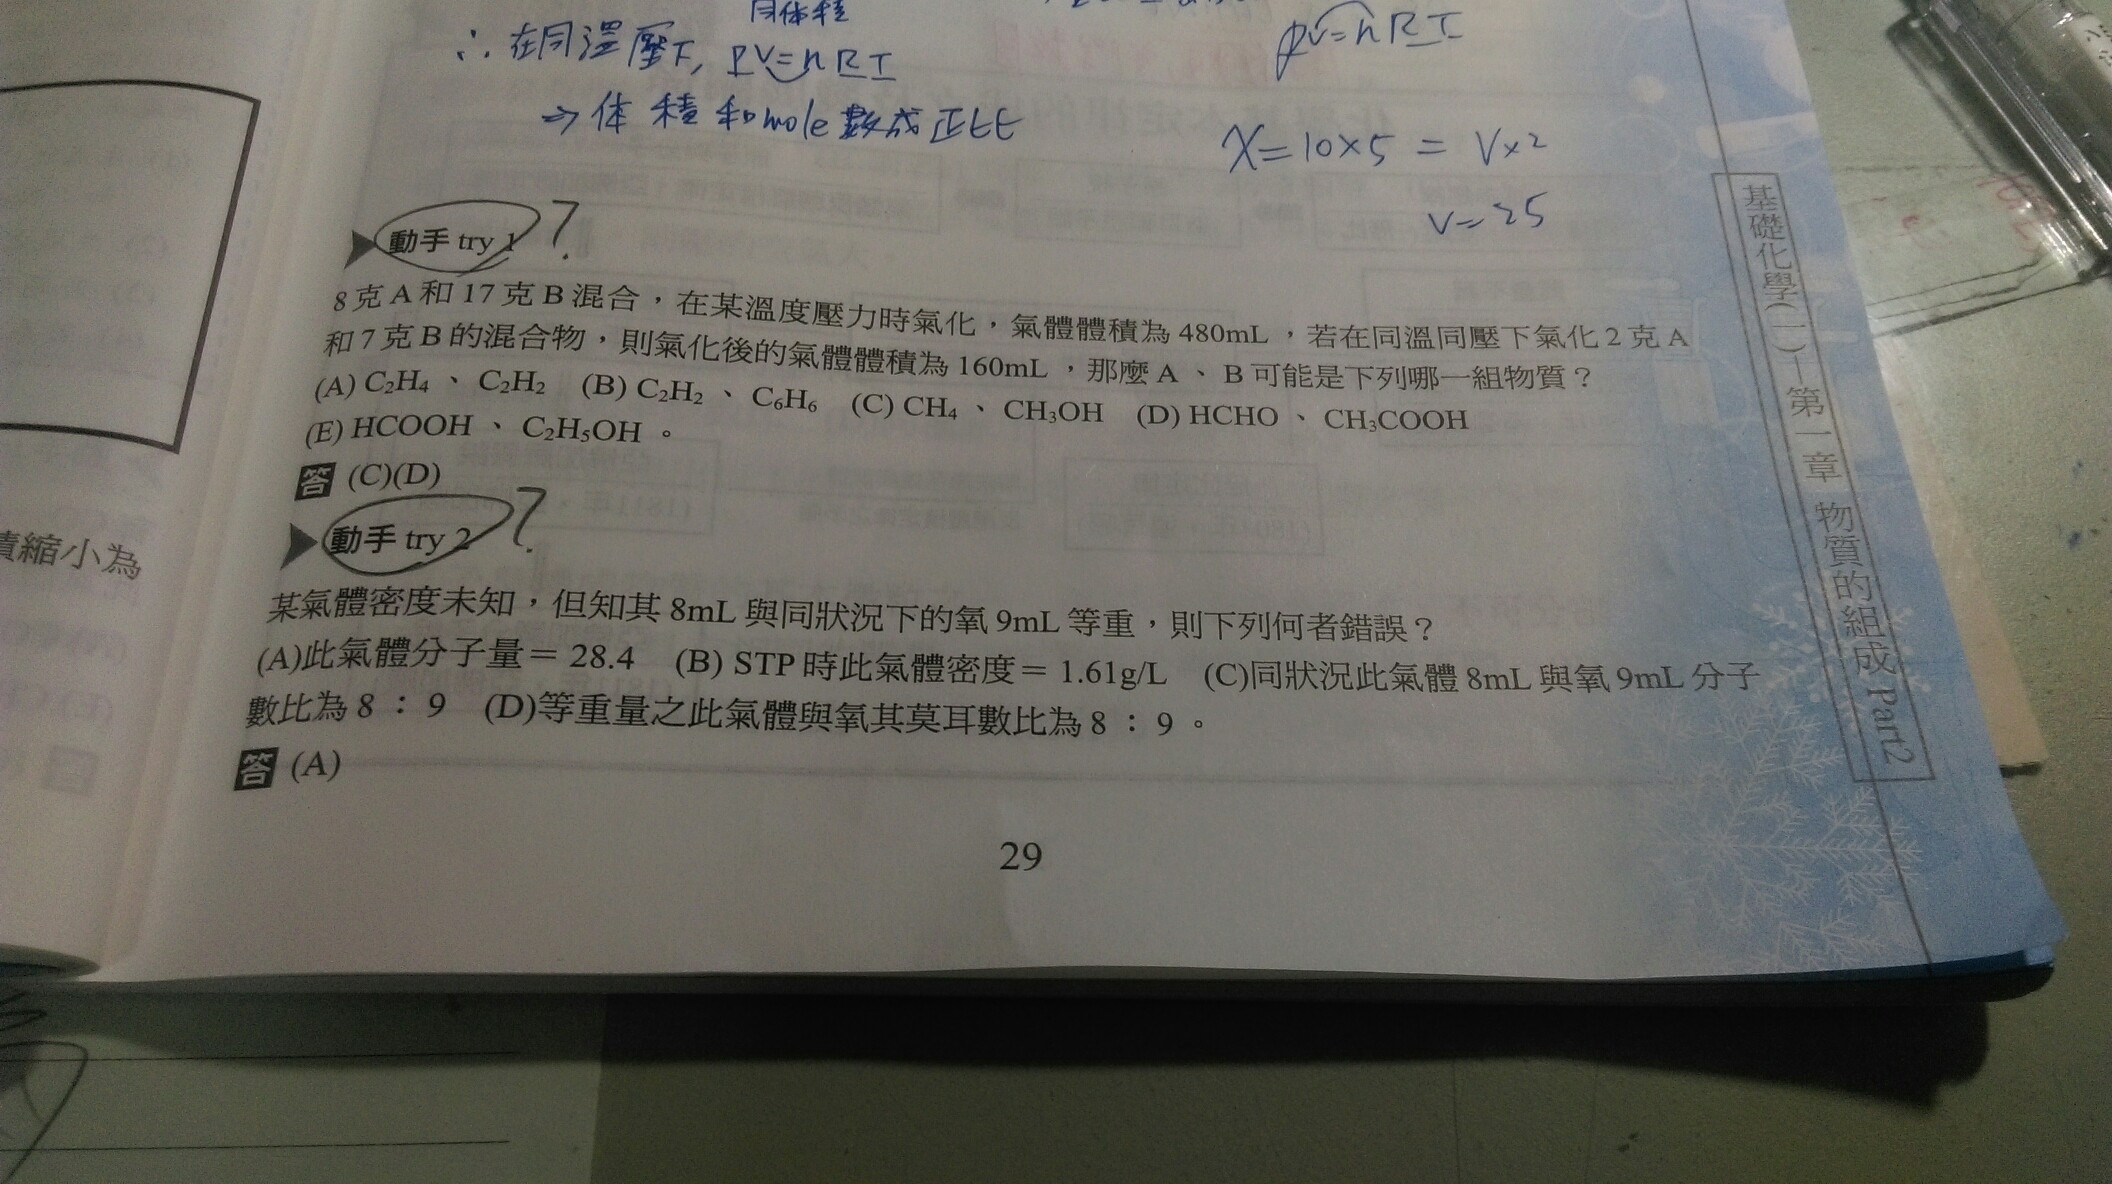 同体積
∴在同溫壓下, PV=nRT
PV=nRT
⇒体積和mole數成正比
X=10×5 = V×2
V=25
動手 try 1 ?
8克A和17克B混合,在某溫度壓力時氣化,氣體體積為480mL,若在同溫同壓下氣化2克A
和7克B的混合物,則氣化後的氣體體積為160mL,那麼A、B可能是下列哪一組物質?
(A) C₂H₄、C₂H₂ (B) C₂H₂、C₆H₆ (C) CH₄、CH₃OH (D) HCHO、CH₃COOH
(E) HCOOH、C₂H₅OH。
答 (C)(D)
動手 try 2 ?
某氣體密度未知,但知其8mL與同狀況下的氧9mL等重,則下列何者錯誤?
(A)此氣體分子量=28.4 (B) STP時此氣體密度=1.61g/L (C)同狀況此氣體8mL與氧9mL分子
數比為8:9 (D)等重量之此氣體與氧其莫耳數比為8:9。
答 (A)
29
基礎化學(一)—第一章 物質的組成 Part2
積縮小為